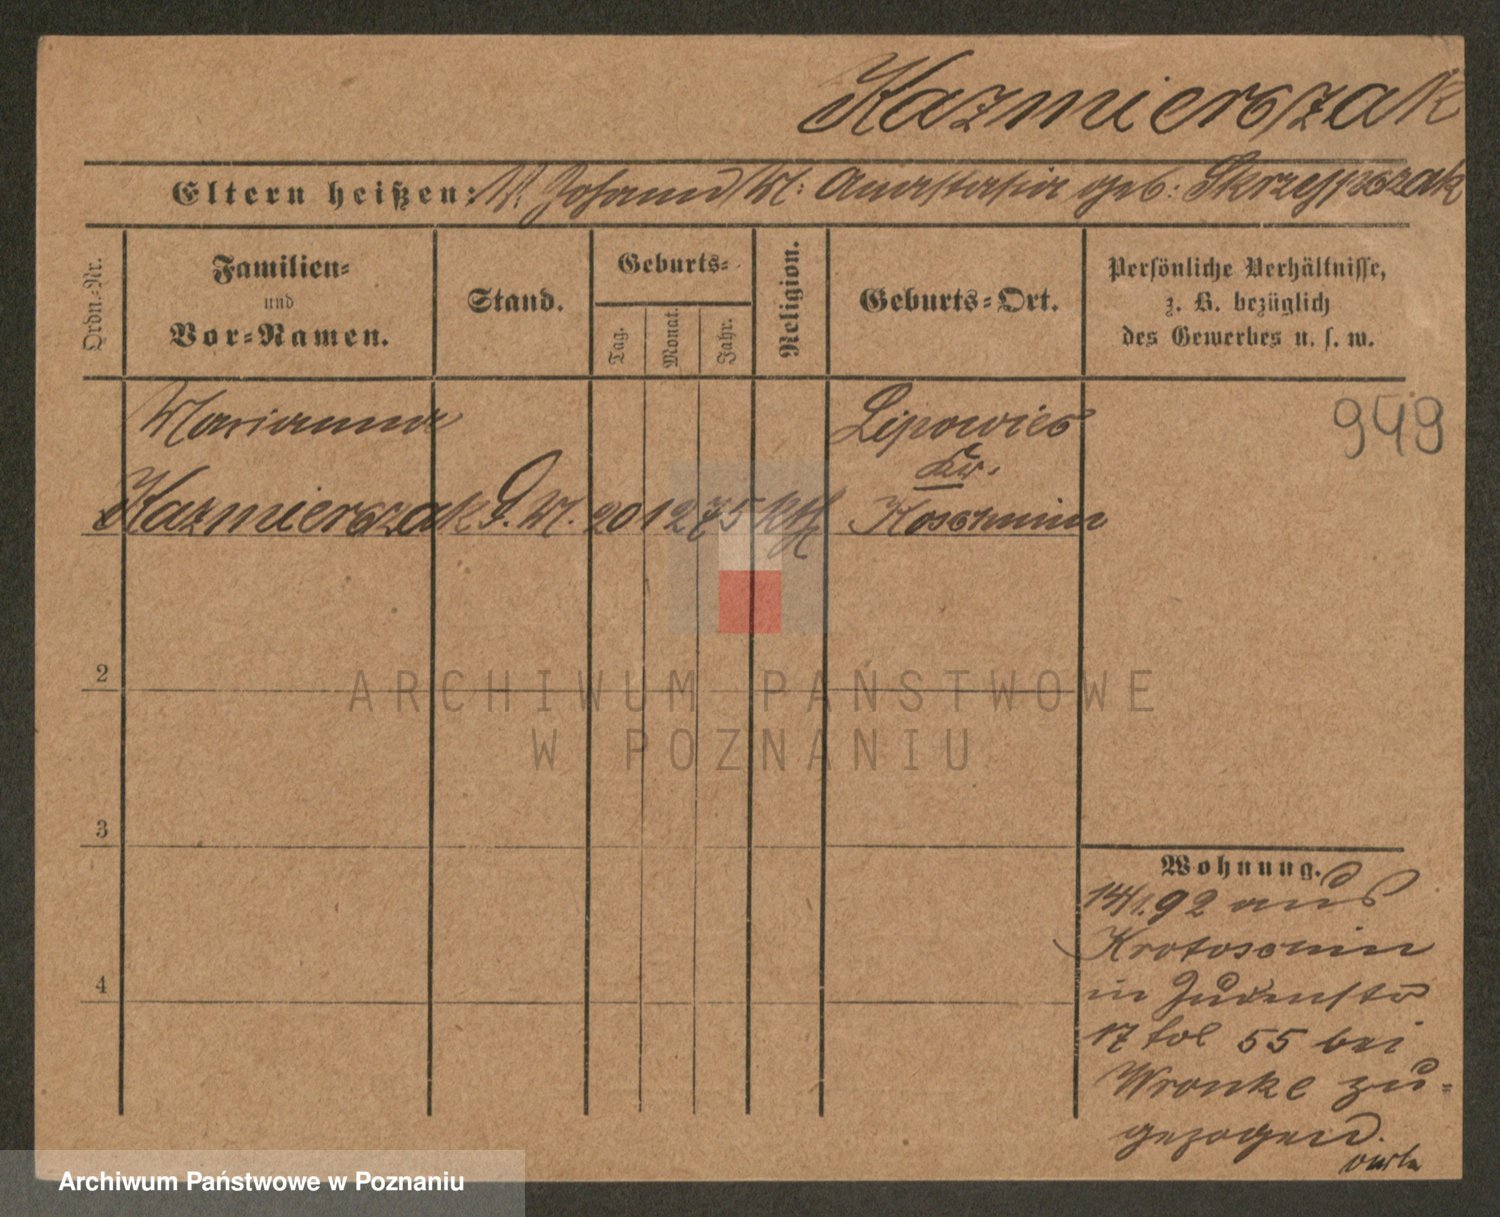 Kazmierczak
Eltern heißen: V. Johann M: Anastasia geb: Skrzypczak
Ordn.-Nr.
Familien-
und
Vor-Namen.
Stand.
Geburts-
Tag.
Monat.
Jahr.
Religion.
Geburts-Ort.
Persönliche Verhältnisse,
z. B. bezüglich
des Gewerbes u. s. w.
949
Marianna
Kazmierczak
D. M.
20 12 75 kth
Lipowiec
Kr.
Koschmin
2
3
4
ARCHIWUM PAŃSTWOWE
W POZNANIU
Wohnung.
14/1.92 aus
Krotoschin
in Judenstr
17 fol 55 bei
Wronke zu-
gezogen.
Archiwum Państwowe w Poznaniu